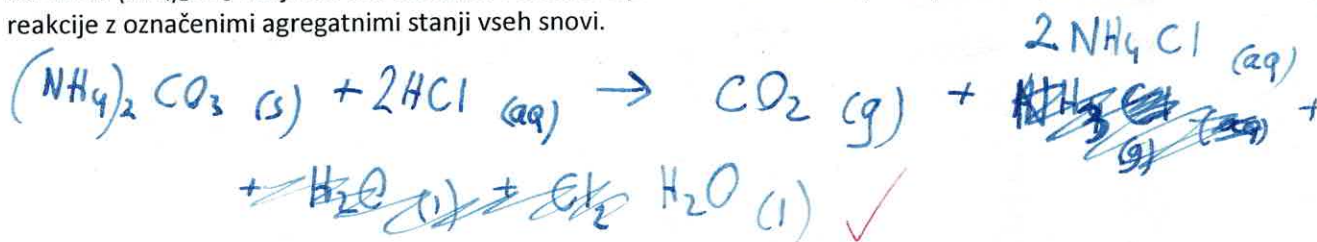 reakcije z označenimi agregatnimi stanji vseh snovi.
2 NH4 Cl (aq)
(NH4)2 CO3 (s) + 2HCl (aq) → CO2 (g) + +
+ H2O (l) + Cl2 H2O (l) ✓